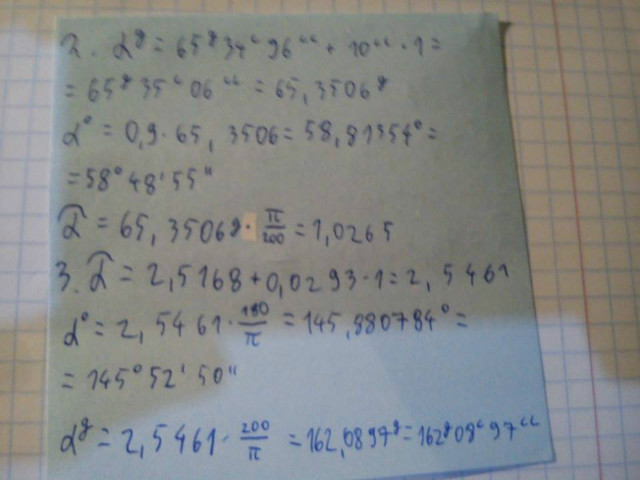 2. αᵍ = 65ᵍ34ᶜ96ᶜᶜ + 10ᶜᶜ · 1 =
= 65ᵍ35ᶜ06ᶜᶜ = 65,3506ᵍ
α° = 0,9 · 65,3506 = 58,81554° =
= 58°48'55"
α̂ = 65,3506ᵍ · π/200 = 1,0265
3. α̂ = 2,5168 + 0,0293 · 1 = 2,5461
α° = 2,5461 · 180/π = 145,880784° =
= 145°52'50"
αᵍ = 2,5461 · 200/π = 162,0897ᵍ = 162ᵍ08ᶜ97ᶜᶜ